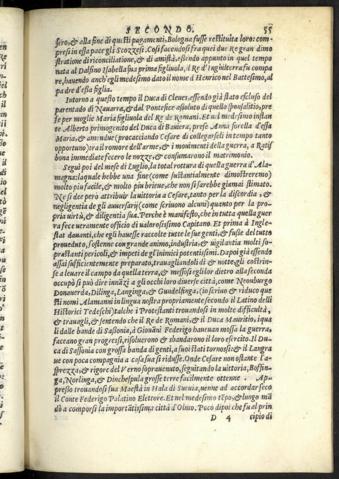 SECONDO. 55
sero, & alla fine di questi pagamenti, Bologna fusse restituita loro: com-
presi in essa pace gli Scozzesi. Cosi facendosi fra quei due Re gran dimo
stratione di riconciliatione, & di amistà, essendo appunto in quel tempo
nata al Dalfino Isabella sua prima figliuola, il Re d'Inghilterra fu compa
re, havendo anch'egli medesimo dato il nome d'Henrico nel Battesimo, al
pa dre d'essa figlia.
Intorno a questo tempo il Duca di Cleves, essendo già stato escluso del
parentado di Navarra, & dal Pontefice assoluto di quella sponsalitio, pre
se per moglie Maria figliuola del Re de Romani. Et nel medesimo instan
te Alberto primogenito del Duca di Baviera, prese Anna sorella d'essa
Maria, & amendue (procacciando Cesare di collegarseli in tempo tanto
opportuno) tra il romore dell'arme, & i movimenti della guerra, a Ratis
bona immediate fecero le nozze, & consumarono il matrimonio.
Seguì poi del mese di Luglio, la total rottura di questa guerra d'Ale-
magna: laquale hebbe una fine (come sustantialmente dimostreremo)
molto piu facile, & molto piu brieve, che non si sarebbe giamai stimato.
Ne si dee però attribuir la vittoria a Cesare, tanto per la discordia, &
negligentia de gli avversarij (come scrivono alcuni) quanto per la pro-
pria virtù, & diligentia sua. Perche è manifesto, che in tutta quella guer
ra fece veramente officio di valorosissimo Capitano. Et prima che
egli havesse raccolte tutte le sue genti, & fusse del tutto
proveduto, sostenne con grande animo, industria, & vigilantia molti so-
prastanti pericoli, & impeti de gl'inimici potentissimi. Dapoi già essendo
assai sufficientemente preparato, travagliandoli dì & notte gli costrin-
se a levare il campo da quella terra, & messisegli lor dietro alla seconda
occupò si può dire innãzi a gli occhi loro diverse città, come Neoburgo
Donaverda, Dilinga, Lauginga, & Gundelfinga, (io scrivo & riduco que
sti nomi Alamanni in lingua nostra propriamente secondo il Latino delli
Historici Tedeschi) dalche i Protestanti trovandosi in molte difficultà,
& travagli, & sentendo che il Re de Romani, & il Duca Mauritio, iqua
li dalle bande di Sassonia, à Giovãni Federigo havevan mossa la guerra,
facevano gran progressi, risolverono & sbandarono il loro esercito. Il Du-
ca di Sassonia con grossa banda di genti, a suoi stati tornossi: & il Langra
ve con poca compagnia a casa sua si ridusse. Onde Cesare non ostante l'a-
sprezza, & rigore del Verno sopravenuto, seguitando la vittoria, Boffin-
ga, Norlinga, & Dinchespula grosse terre facilmente ottenne. Ap-
presso trovandosi sua Maestà in Hala di Suevia, venne ad accordar seco
il Conte Federigo Palatino Elettore. Et nel medesimo tẽpo, & luogo mã
dò a comporsi la importãtissima città d'Olmo. Poco dipoi che fu al prin
D 4 cipio di